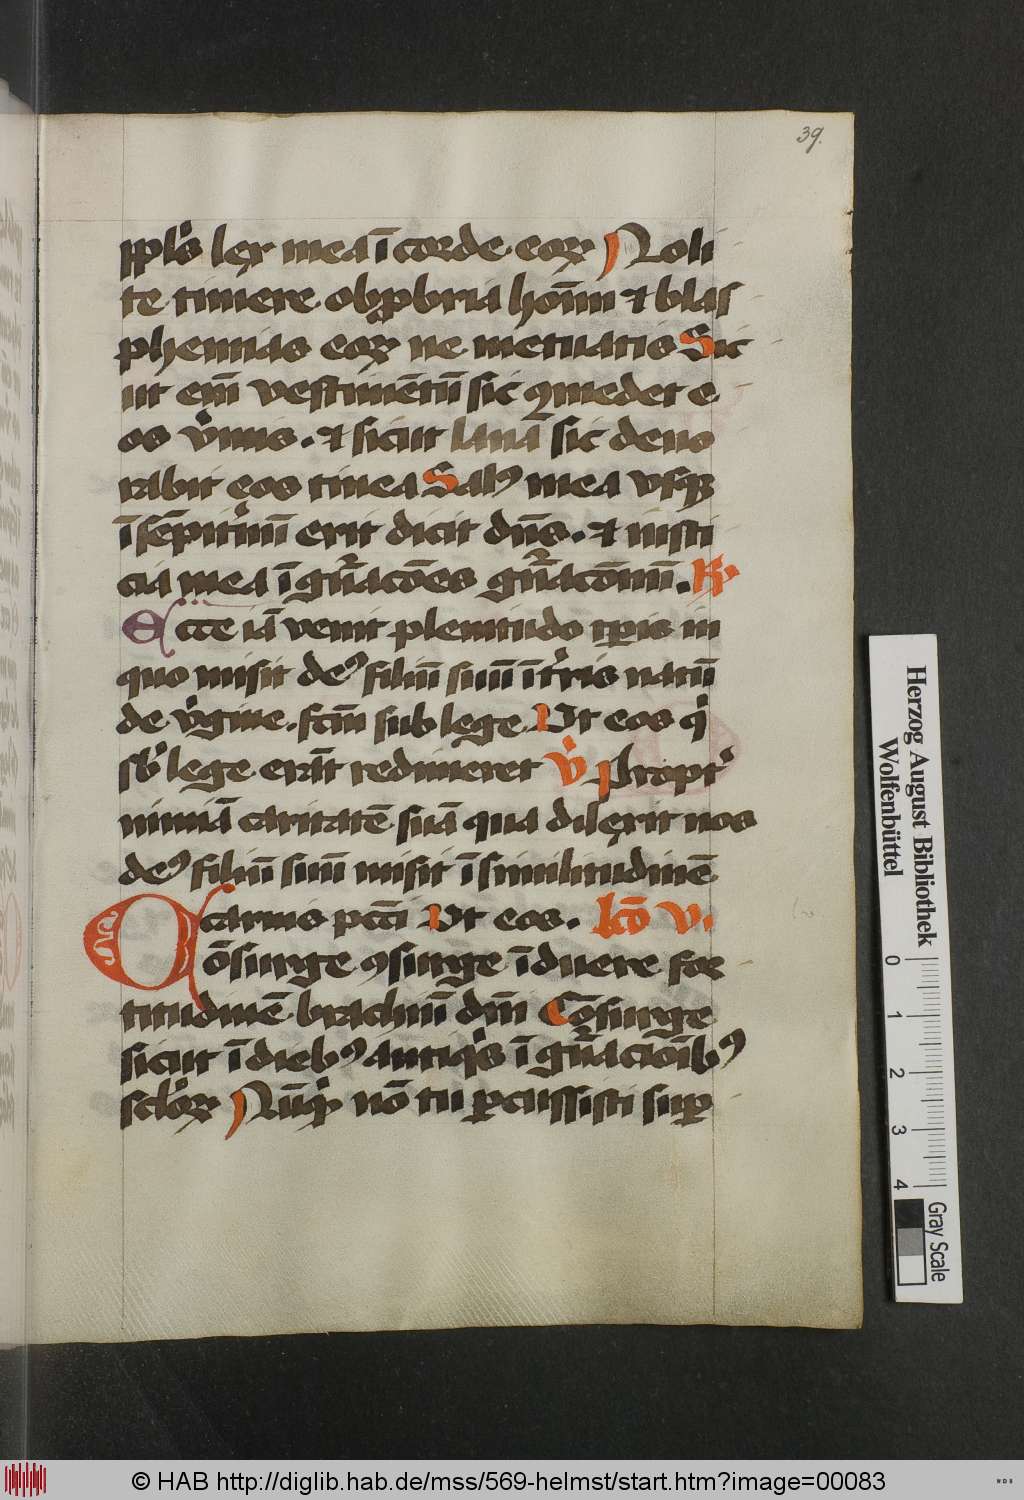 39.
pplꝰs lex mea ī corde eoꝝ Noli
te timere obꝓbria hoīm ⁊ blas
phemias eoꝝ ne metuatis Sic
ut em̄ vestimētū sic ꝯmedet e
os v̓mis . ⁊ sicut lanā sic deuo
rabit eos tinea Salꝰ mea vsqꝫ
ī sēpit̓nū erit dicit dn̄s . ⁊ iusti
cia mea ī gn̄acōes gn̄acōnū . R̷
Ecce iā venit plenitudo tꝑis in
quo misit deꝰ filiū suū ī t̓ris natū
de v̓gine . fcm̄ sub lege . Ut eos q̓
sb̓ lege erāt redimeret V̓ Propt̓
nimiā caritatē suā qua dilexit nos
deꝰ filiū suū misit ī similitudinē
carnis pcc̄i Ut eos . Lcō v.
Cōsurge ꝯsurge īduere for
titudinē brachiū dn̄i Cōsurge
sicut ī diebꝰ antiq̓s ī gn̄acionībꝰ
sclo̓ꝝ Nūq̓ nō tu ꝑcussisti suꝑ
Herzog August Bibliothek
Wolfenbüttel
0 1 2 3 4
Gray Scale
© HAB http://diglib.hab.de/mss/569-helmst/start.htm?image=00083